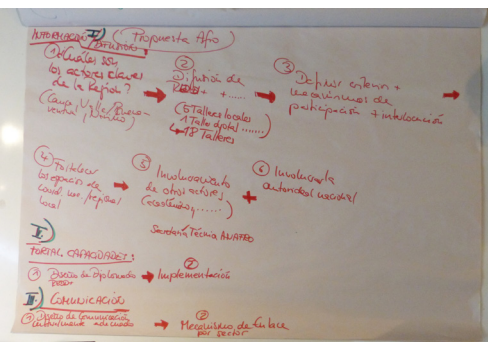 INFORMACIÓN / II) (Propuesta Afro)
① ¿Cuáles son
los actores claves
de la Región?
(Cauca, Valle/Buena-
ventura, Nariño)
②
Difusión de
+ ......
(5 Talleres locales
1 Taller dptal ......)
18 Talleres
③ Definir criterios +
mecanismos de
participación + interlocución
④ Fortalecer
los espacios de
local
⑤ Involucramiento
de otros actores
(académicos, ......)
⑥ Involucrar la
autoridad nacional
Secretaría Técnica
I)
FORTAL. CAPACIDADES:
① Diseño de Diplomado
② Implementación
III) COMUNICACIÓN
① Diseño de Comunicación
culturalmente adecuado
② Mecanismo de Enlace
por sector